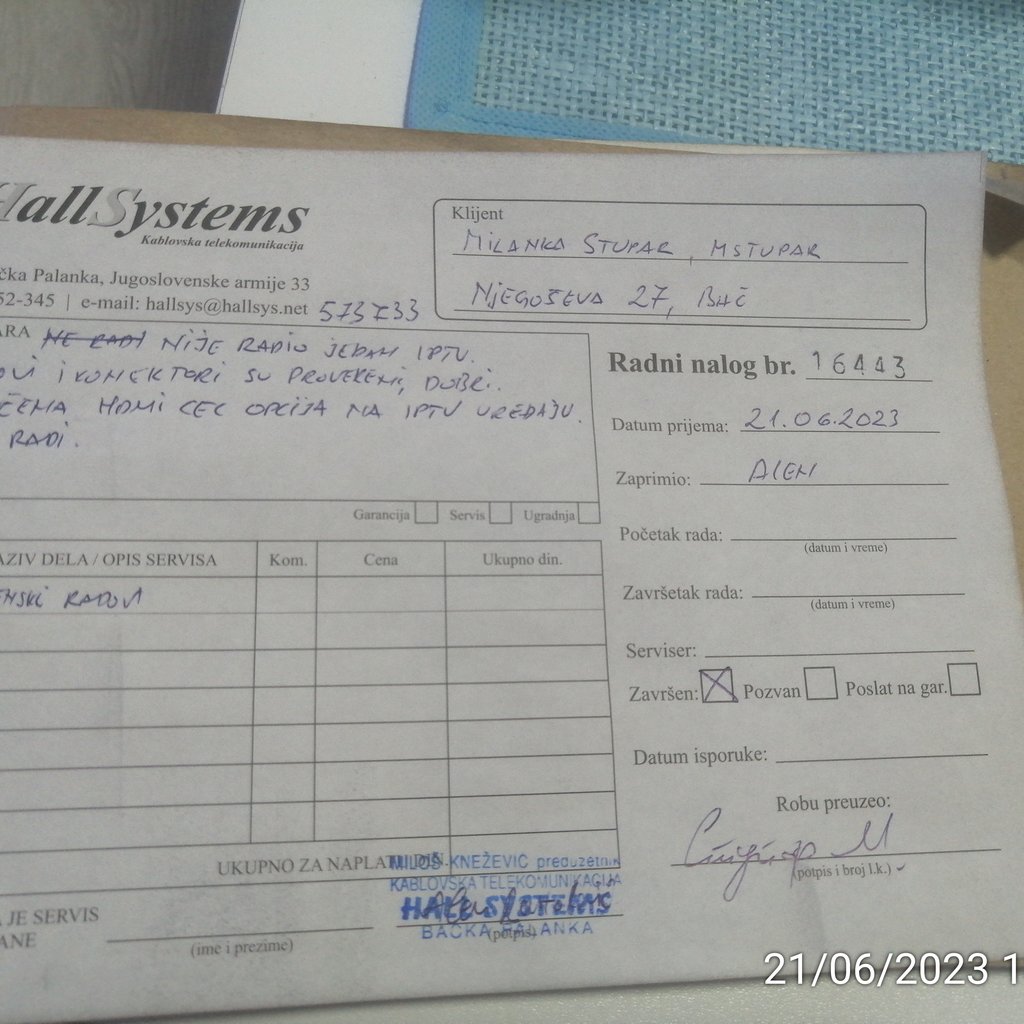 HallSystems
Kablovska telekomunikacija
čka Palanka, Jugoslovenske armije 33
52-345 | e-mail: hallsys@hallsys.net 573733
Klijent
MILANKA STUPAR, MSTUPAR
NJEGOŠEVA 27, BAČ
ARA NE RADI NIJE RADIO JEDAN IPTV.
OVI I KONEKTORI SU PROVERENI, DOBRI.
ČENA HDMI CEC OPCIJA NA IPTV UREĐAJU.
RADI.
Garancija Servis Ugradnja
Radni nalog br. 16443
Datum prijema: 21.06.2023
Zaprimio: ALEN
Početak rada:
(datum i vreme)
Završetak rada:
(datum i vreme)
Serviser:
Završen: Pozvan Poslat na gar.
Datum isporuke:
Robu preuzeo:
(potpis i broj l.k.)
AZIV DELA / OPIS SERVISA Kom. Cena Ukupno din.
ENSKI RADOVI
UKUPNO ZA NAPLATU DIN.
MILOŠ KNEŽEVIĆ preduzetnik
KABLOVSKA TELEKOMUNIKACIJA
HALL SYSTEMS
BAČKA PALANKA
A JE SERVIS
ANE
(ime i prezime)
(potpis)
21/06/2023 1